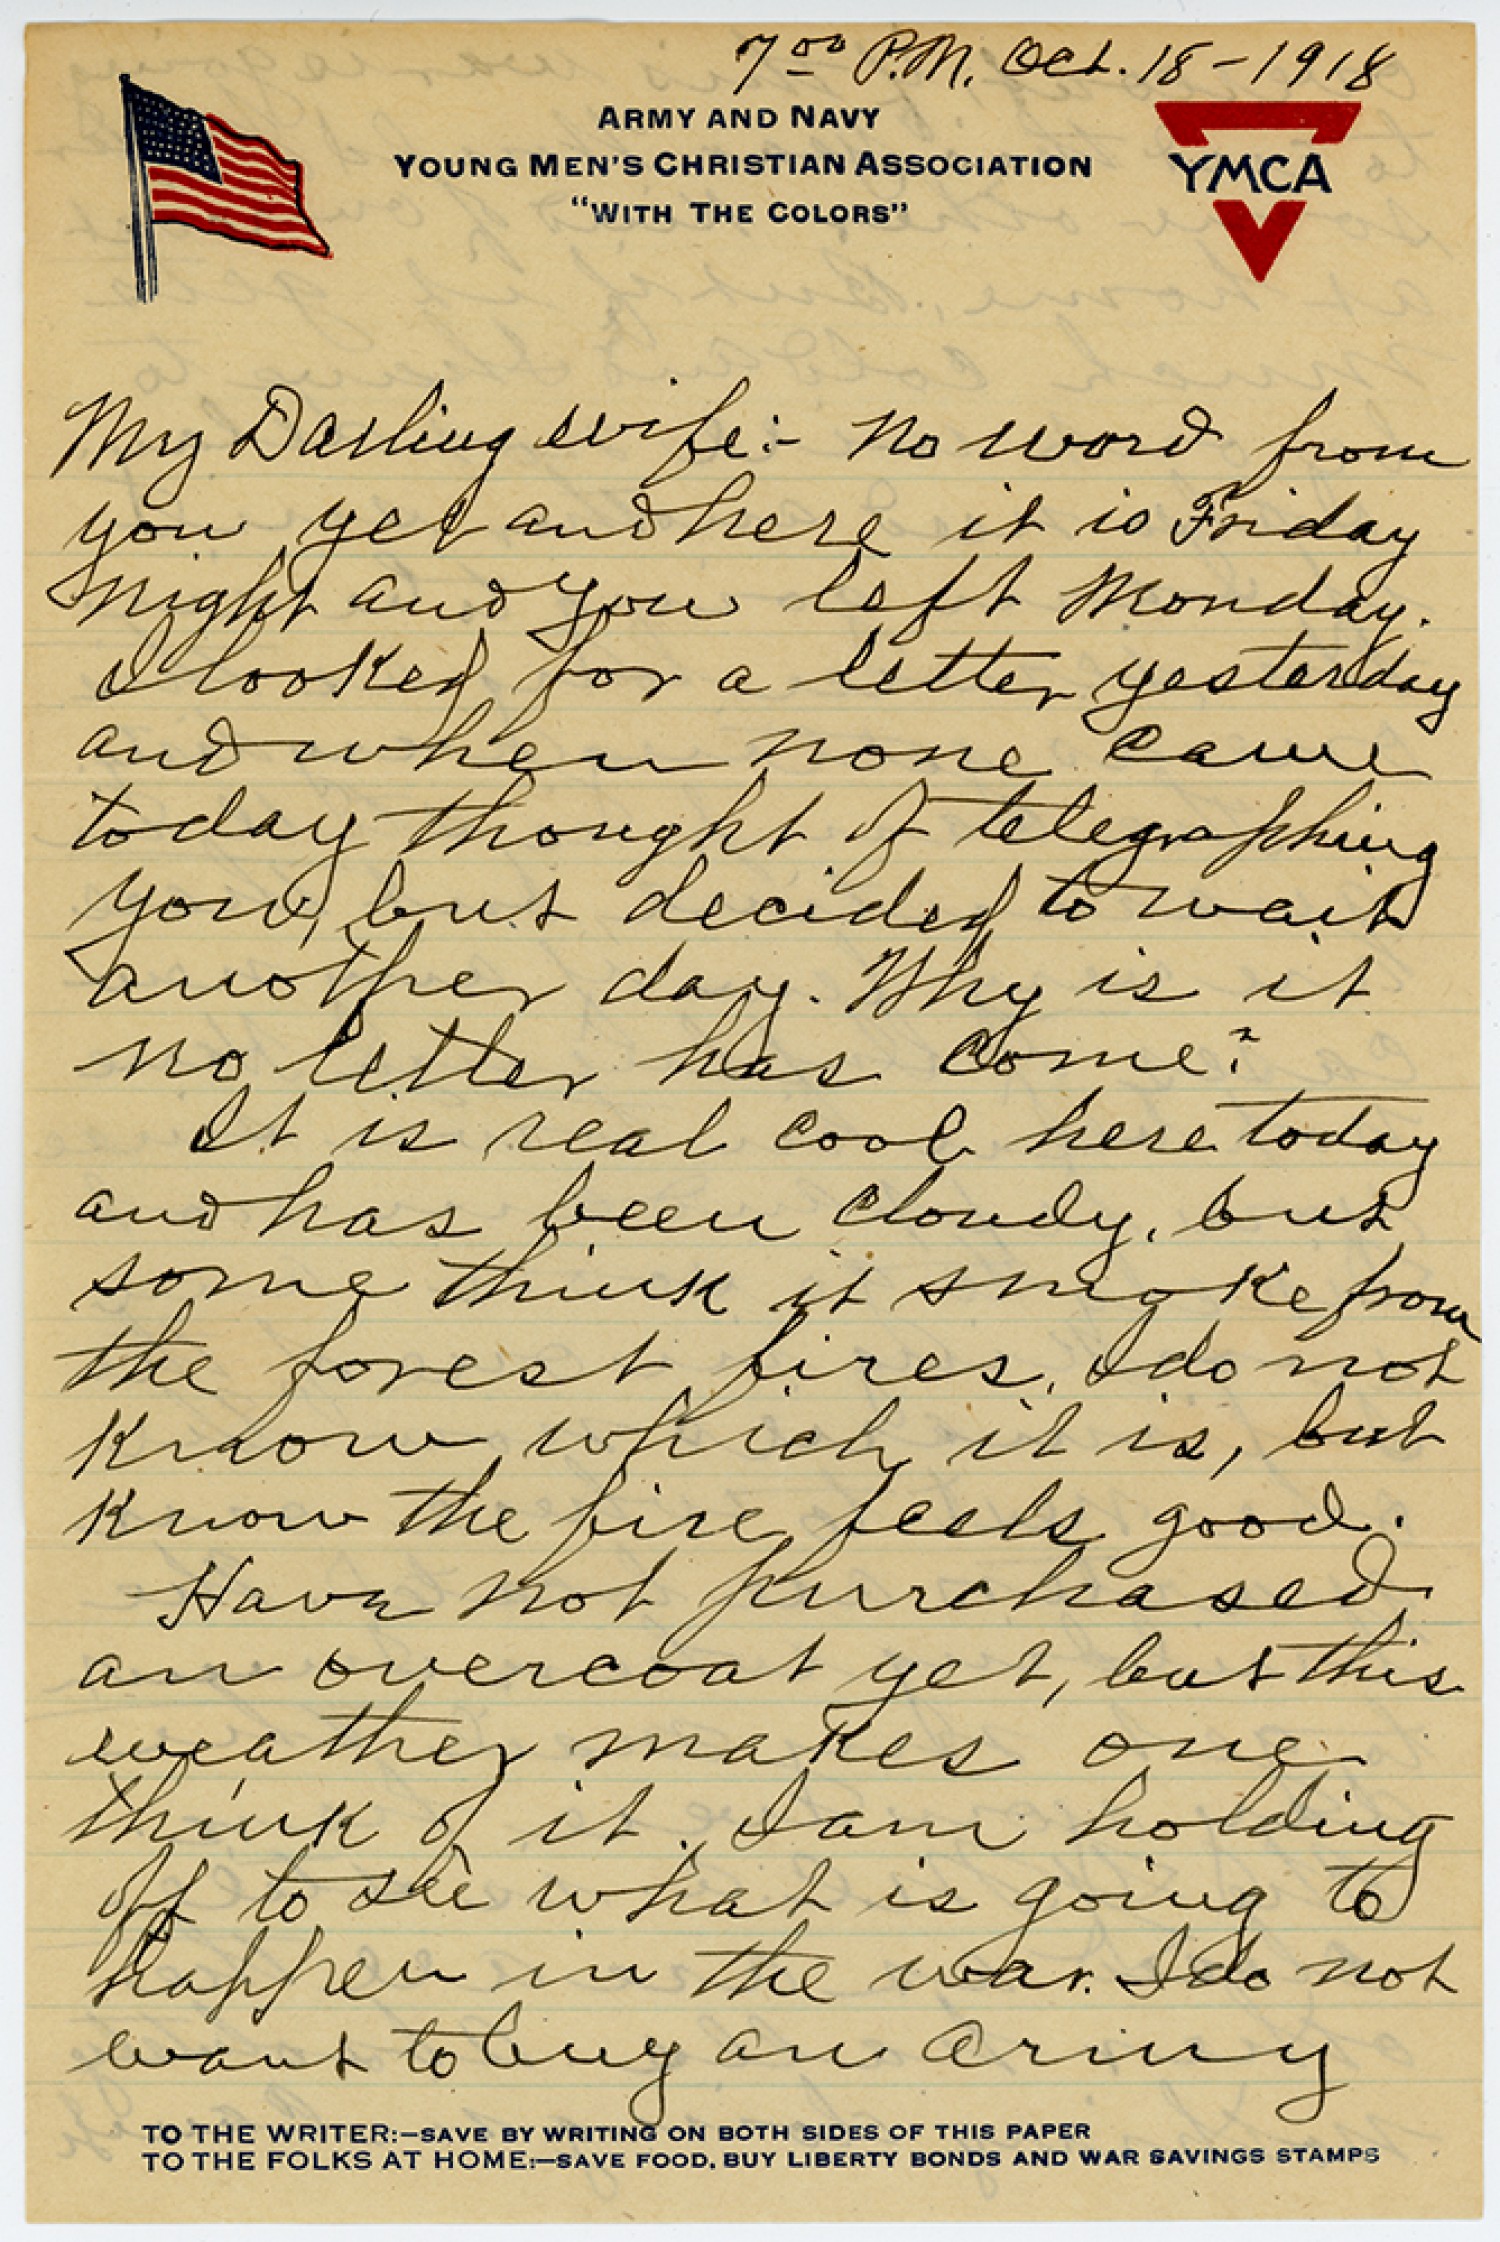 7 00 P.M. Oct. 18 - 1918
ARMY AND NAVY
YOUNG MEN'S CHRISTIAN ASSOCIATION
"WITH THE COLORS"
YMCA
My Darling wife:- No word from
you yet and here it is Friday
night and you left Monday.
I looked for a letter yesterday
and when none came
today thought of telegraphing
you, but decided to wait
another day. Why is it
no letter has come?
It is real cool here today
and has been cloudy, but
some think it smoke from
the forest fires. I do not
know which it is, but
know the fire feels good.
Have not purchased
an overcoat yet, but this
weather makes one
think of it. I am holding
off to see what is going to
happen in the war. I do not
want to buy an army
TO THE WRITER:—SAVE BY WRITING ON BOTH SIDES OF THIS PAPER
TO THE FOLKS AT HOME:—SAVE FOOD, BUY LIBERTY BONDS AND WAR SAVINGS STAMPS